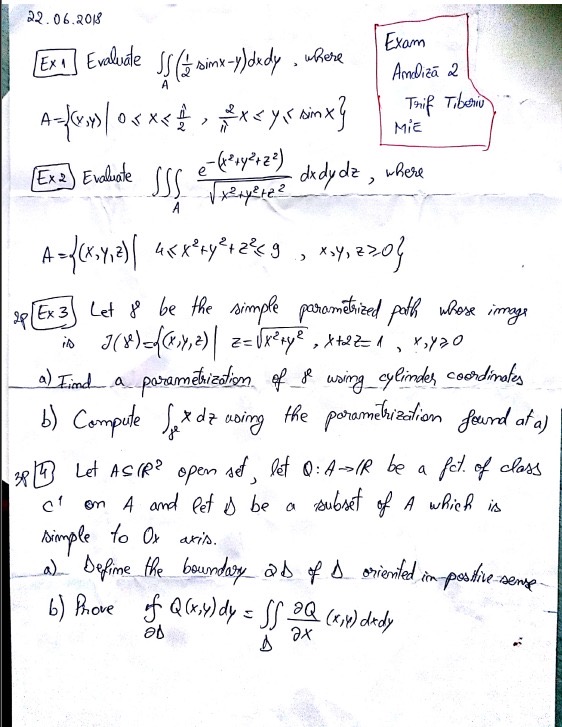 22.06.2018
Exam
Analiză 2
Trif Tiberiu
MiE
Ex 1 Evaluate ∬_A (1/2 sinx-y)dxdy, where
A={(x,y) | 0≤x≤π/2, 2/π x≤y≤sinx}
Ex 2 Evaluate ∭_A e^-(x²+y²+z²)/√(x²+y²+z²) dxdydz, where
A={(x,y,z) | 4≤x²+y²+z²≤9, x,y,z≥0}
2p Ex 3 Let γ be the simple parametrized path whose image
is I(γ)={(x,y,z) | z=√(x²+y²), x+2z=1, x,y≥0
a) Find a parametrization of γ using cylinder coordinates
b) Compute ∫_γ x dz using the parametrization found at a)
3p 4 Let A⊆ℝ² open set, let Q:A→ℝ be a fct. of class
C¹ on A and let Δ be a subset of A which is
simple to Ox axis.
a) Define the boundary ∂Δ of Δ oriented in positive sense
b) Prove ∮_∂Δ Q(x,y)dy = ∬_Δ ∂Q/∂x (x,y)dxdy